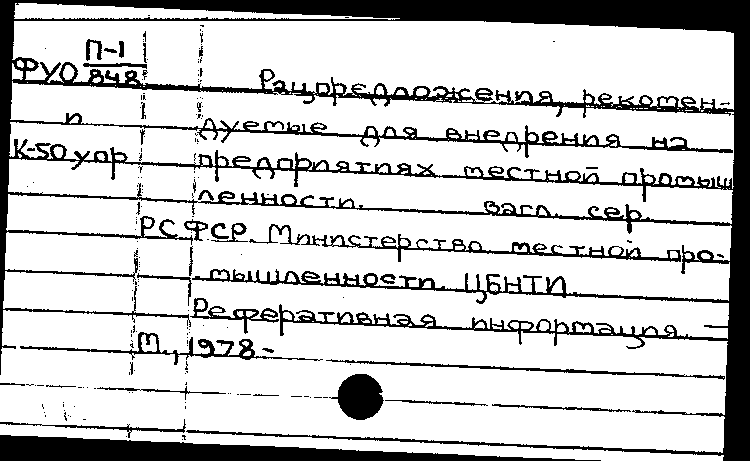 ФУО П-1/848
Рацпредложения, рекомен-
п
дуемые для внедрения на
К-50 упр
предприятиях местной промыш
ленности. загл. сер.
РСФСР. Министерство местной про-
мышленности. ЦБНТИ.
Реферативная информация. —
М., 1978-